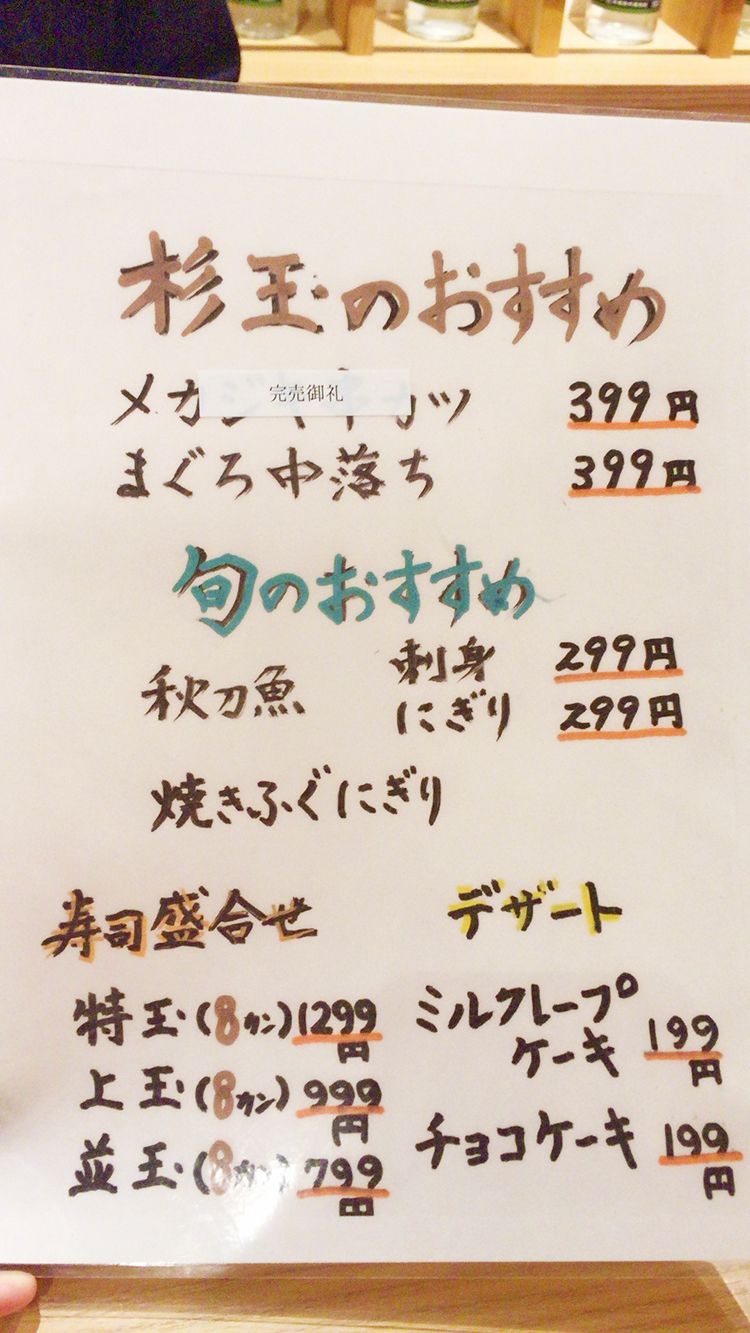 杉玉のおすすめ
メカ 完売御礼 カツ 399円
まぐろ中落ち 399円
旬のおすすめ
秋刀魚 刺身 299円
にぎり 299円
焼きふぐにぎり
寿司盛合せ
特玉(8カン)1299円
上玉(8カン)999円
並玉(8カン)799円
デザート
ミルクレープ
ケーキ 199円
チョコケーキ 199円